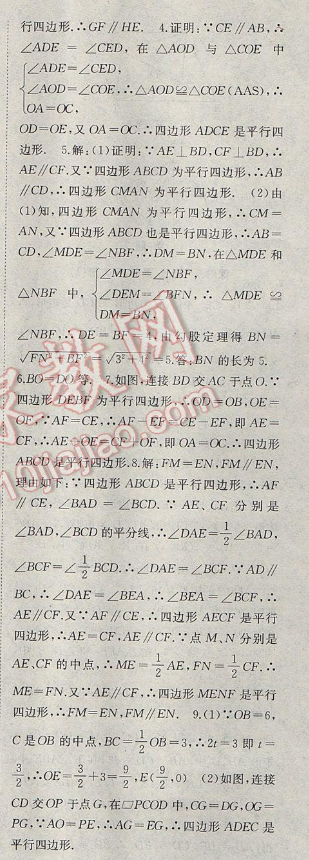 行四边形.∴GF∥HE. 4.证明:∵CE∥AB,∴
∠ADE = ∠CED, 在 △AOD 与 △COE 中
∠ADE=∠CED,
∠AOD=∠COE,∴△AOD≌△COE(AAS),∴
OA=OC,
OD=OE,又 OA=OC.∴四边形 ADCE 是平行四
边形. 5.解:(1)证明:∵AE⊥BD,CF⊥BD,∴
AE∥CF.又∵四边形 ABCD 为平行四边形,∴AB
∥CD,∴四边形 CMAN 为平行四边形. (2)由
(1)知,四边形 CMAN 为平行四边形,∴CM=
AN,又∵四边形 ABCD 也是平行四边形,∴AB=
CD,∠MDE=∠NBF,∴DM=BN,在△MDE 和
∠MDE=∠NBF,
△NBF 中, ∠DEM=∠BFN, ∴ △MDE ≌
DM=BN,
∠NBF,∴DE=BF=4,由勾股定理得 BN=
√FN²+BF²=√3²+4²=5.答:BN 的长为 5.
6.BO=DO 等. 7.如图,连接 BD 交 AC 于点 O.∵
四边形 DEBF 为平行四边形,∴OD=OB,OE=
OF,∵AF=CE,∴AF-EF=CE-EF,即 AE=
CF,∴AE+OE=CF+OF,即 OA=OC.∴四边形
ABCD 是平行四边形.8.解:FM=EN,FM∥EN,
理由如下:∵四边形 ABCD 是平行四边形,∴AF
∥CE,∠BAD=∠BCD.∵AE、CF 分别是
∠BAD,∠BCD 的平分线,∴∠DAE=1/2∠BAD,
∠BCF=∠1/2BCD.∴∠DAE=∠BCF.∵AD∥
BC,∴∠DAE=∠BEA,∴∠BEA=∠BCF,∴
AE∥CF.又∵AF∥CE,∴四边形 AECF 是平行
四边形,∴AE=CF,AE∥CF.∵点 M、N 分别是
AE、CF 的中点,∴ME=1/2AE,FN=1/2CF.∴
ME=FN.又∵AE∥CF,∴四边形 MENF 是平行
四边形,∴FM=EN,FM∥EN. 9.(1)∵OB=6,
C 是 OB 的中点,BC=1/2OB=3,∴2t=3 即 t=
3/2,∴OE=3/2+3=9/2,E(9/2,0) (2)如图,连接
CD 交 OP 于点 G,在▱PCOD 中,CG=DG,OG=
PG,∵AO=PE,∴AG=EG,∴四边形 ADEC 是
平行四边形.